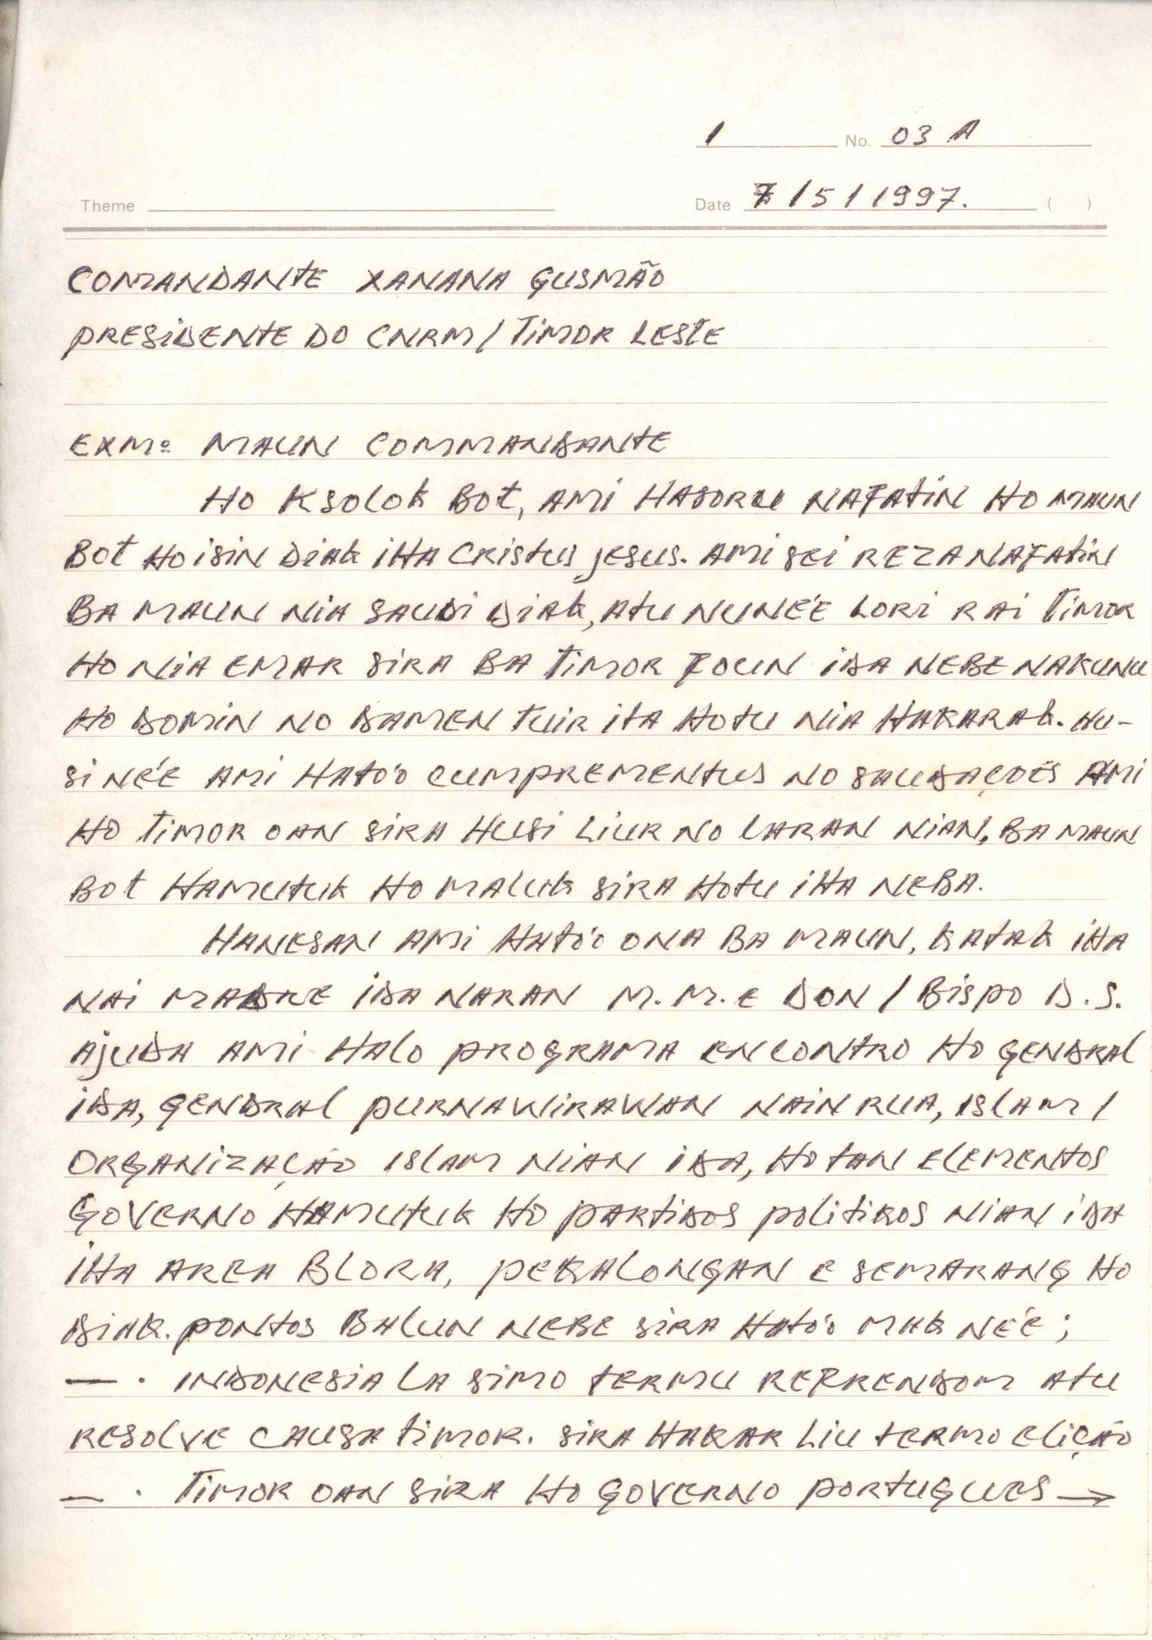 1 No. 03 A
Theme Date 7/5/1997. ( )
COMANDANTE XANANA GUSMÃO
PRESIDENTE DO CNRM/TIMOR LESTE
EXMº MAUN COMMANDANTE
HO KSOLOK BOT, AMI HASORU NAFATIN HO MAUN
BOT HO ISIN DIAK IHA CRISTUS JESUS. AMI SEI REZA NAFATIN
BA MAUN NIA SAUDI DIAK, ATU NUNÉ'E LORI RAI TIMOR
HO NIA EMAR SIRA BA TIMOR FOUN IDA NEBE NAKUNU
HO DOMIN NO DAMEN TUIR ITA HOTU NIA HAKARAK. HU-
SI NÉ'E AMI HATO'O CUMPREMENTUS NO SAUDAÇOES AMI
HO TIMOR OAN SIRA HUSI LIUR NO LARAN NIAN, BA MAUN
BOT HAMUTUK HO MALUK SIRA HOTU IHA NEBA.
HANESAN AMI HATO'O ONA BA MAUN, KATAK IHA
NAI MADRE IDA NARAN M.M. E DON/BISPO D.S.
AJUDA AMI HALO PROGRAMA ENCONTRO HO GENDRAL
IDA, GENDRAL PURNAWIRAWAN NAIN RUA, ISLAM/
ORGANIZAÇÃO ISLAM NIAN IDA, HO TAN ELEMENTOS
GOVERNO HAMUTUK HO PARTIDOS POLITIKOS NIAN IDA
IHA AREA BLORA, PEKALONGAN E SEMARANG HO
DIAK. PONTOS BALUN NEBE SIRA HATO'O MAK NÉ'E;
— . INDONESIA LA SIMO TERMU REFRENDOM ATU
RESOLVE CAUSA TIMOR. SIRA HAKAR LIU TERMO ELIÇÃO
— . TIMOR OAN SIRA HO GOVERNO PORTUGUES →